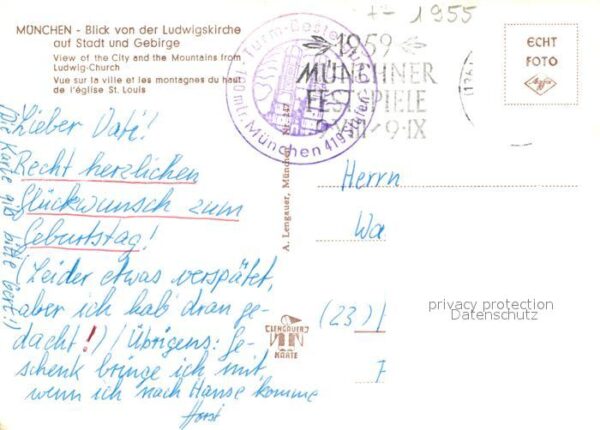 +- 1955
MÜNCHEN - Blick von der Ludwigskirche
auf Stadt und Gebirge
View of the City and the Mountains from
Ludwig-Church
Vue sur la ville et les montagnes du haut
de l'église St. Louis
Turm-Besteigung
München 419 Stufen
1959
MÜNCHNER
FESTSPIELE
9·VIII-9·IX
ECHT
FOTO
Agfa
Lieber Vati!
Recht herzlichen
Glückwunsch zum
Geburtstag!
(Leider etwas verspätet,
aber ich hab dran ge-
dacht!) / Übrigens: Ge-
schenk bringe ich mit,
wenn ich nach Hause komme
Horst
(Die Karte gib bitte Gert!)
A. Lengauer, München Nr. 247
LENGAUER
KARTE
Herrn
Wa
(23)
privacy protection
Datenschutz